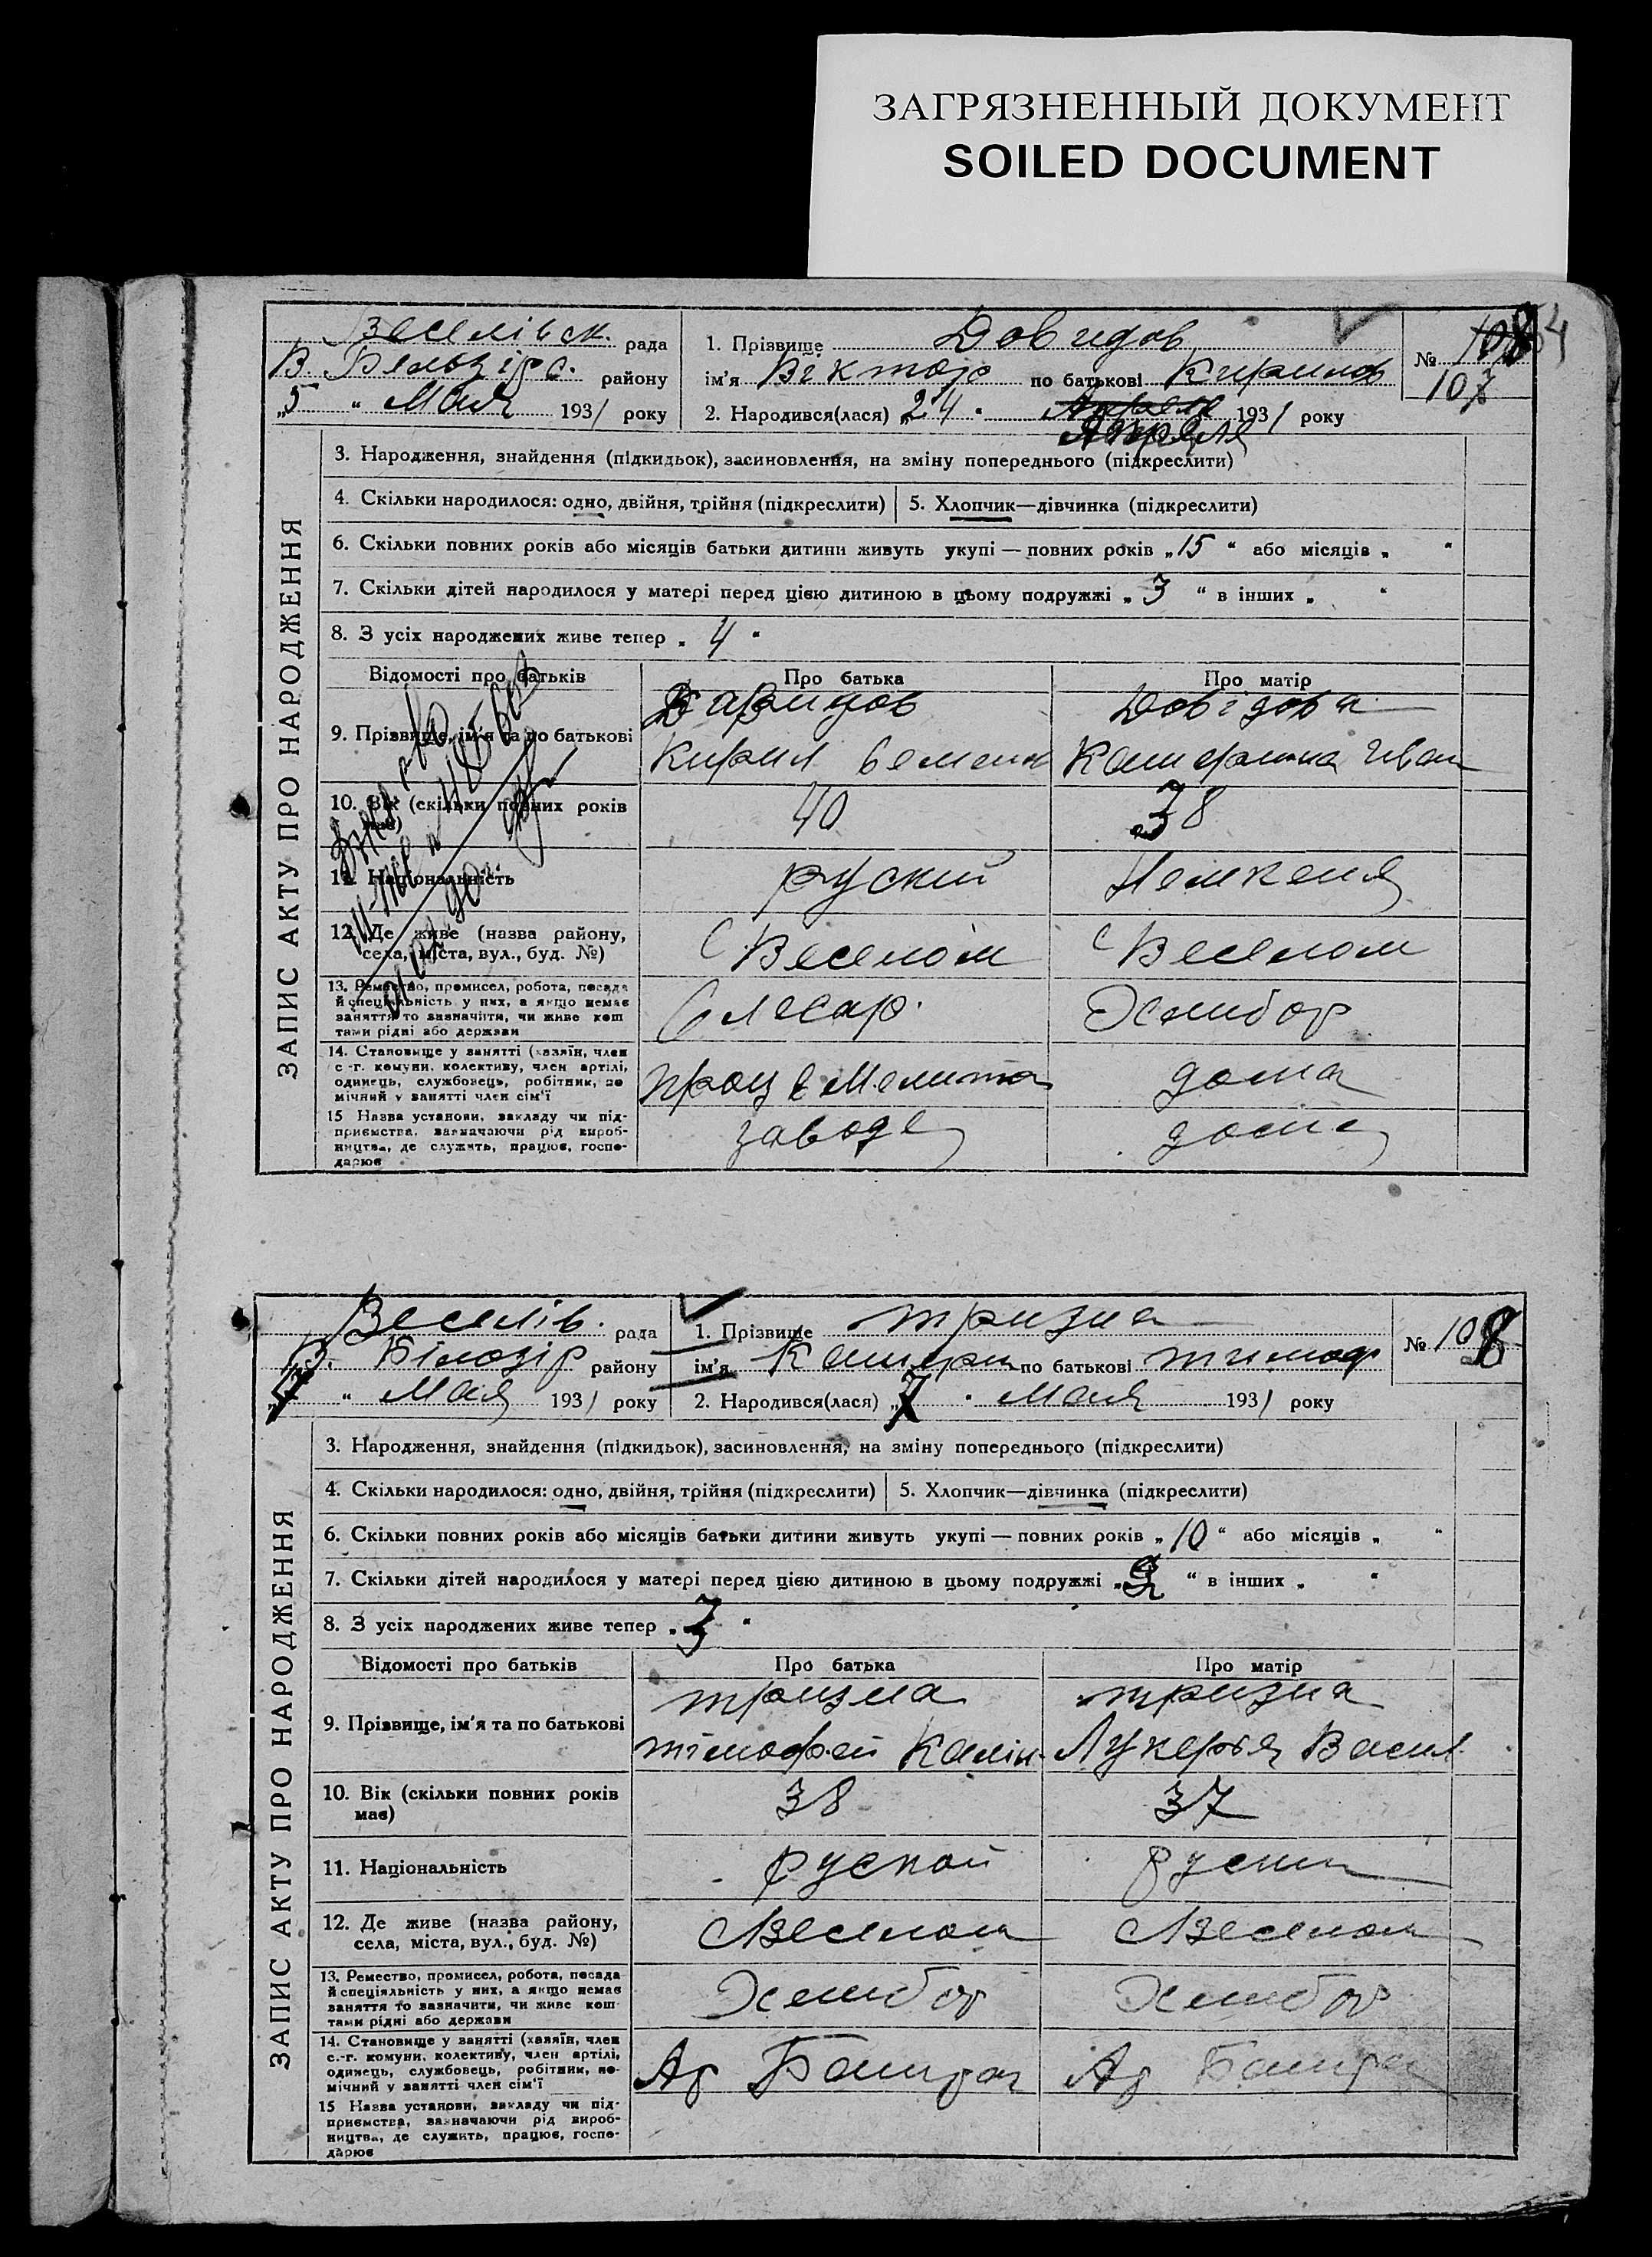 ЗАГРЯЗНЕННЫЙ ДОКУМЕНТ
SOILED DOCUMENT
Веселівск. рада
В. Бельзірс. району
„5 “ Мая 1931 року
1. Прізвище Довидов
ім'я Віктор по батькові Кирилов
2. Народився(лася) „24 “ Апреля 1931 року
Апреля
№ 108
107
ЗАПИС АКТУ ПРО НАРОДЖЕННЯ
3. Народження, знайдення (підкидьок), засиновлення, на зміну попереднього (підкреслити)
4. Скільки народилося: одно, двійня, трійня (підкреслити)
5. Хлопчик—дівчинка (підкреслити)
6. Скільки повних років або місяців батьки дитини живуть укупі — повних років „15 “ або місяців „ “
7. Скільки дітей народилося у матері перед цією дитиною в цьому подружжі „ 3 “ в інших „ “
8. З усіх народжених живе тепер „ 4 “
Відомості про батьків Про батька Про матір
9. Прізвище, ім'я та по батькові
Довідова
Кирил Семен Катерина Иван
10. Вік (скільки повних років має) 40 38
11. Національність руский Немкеня
12. Де живе (назва району, села, міста, вул., буд. №) С Веселом С Веселом
13. Ремество, промисел, робота, посада
й спеціяльність у них, а якщо немає
заняття то зазначити, чи живе кош
тами рідні або держави
Слесар.
14. Становище у занятті (хазяїн, член
с.-г. комуни, колективу, член артілі,
одинець, службовець, робітник, по
мічний у занятті член сім'ї
дома
15 Назва установи, закладу чи під-
приємства, зазначаючи рід вироб-
ництва, де служить, працює, госпо-
дарює
заводе дома
Веселів. рада
В. Білозір району
„7 “ Мая 1931 року
1. Прізвище тризна
ім'я Катери по батькові тимоф
2. Народився(лася) „7 “ Мая 1931 року
№ 108
ЗАПИС АКТУ ПРО НАРОДЖЕННЯ
3. Народження, знайдення (підкидьок), засиновлення, на зміну попереднього (підкреслити)
4. Скільки народилося: одно, двійня, трійня (підкреслити)
5. Хлопчик—дівчинка (підкреслити)
6. Скільки повних років або місяців батьки дитини живуть укупі — повних років „10 “ або місяців „ “
7. Скільки дітей народилося у матері перед цією дитиною в цьому подружжі „2 “ в інших „ “
8. З усіх народжених живе тепер „3 “
Відомості про батьків Про батька Про матір
9. Прізвище, ім'я та по батькові
тризна тризна
тімофей Калін. Лукерья Васил.
10. Вік (скільки повних років має) 38 37
11. Національність руской руски
12. Де живе (назва району, села, міста, вул., буд. №) С Веселом С Веселом
13. Ремество, промисел, робота, посада
й спеціяльність у них, а якщо немає
заняття то зазначити, чи живе кош
тами рідні або держави
14. Становище у занятті (хазяїн, член
с.-г. комуни, колективу, член артілі,
одинець, службовець, робітник, по-
мічний у занятті член сім'ї
15 Назва установи, закладу чи під-
приємства, зазначаючи рід вироб-
ництва, де служить, працює, госпо-
дарює